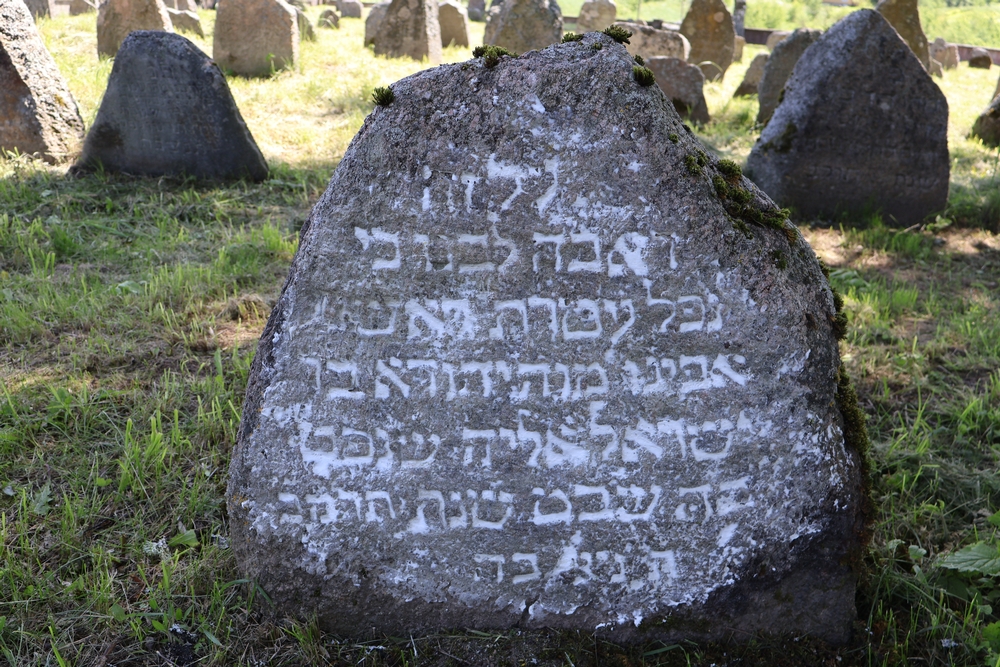 על זה
דאבה לבנו כי
נפל עטרת ראשינו
אבינו מנ יהודא בן
ישראל אליה שנפט
כה שבט שנת תרמב
ת נ צ ב ה